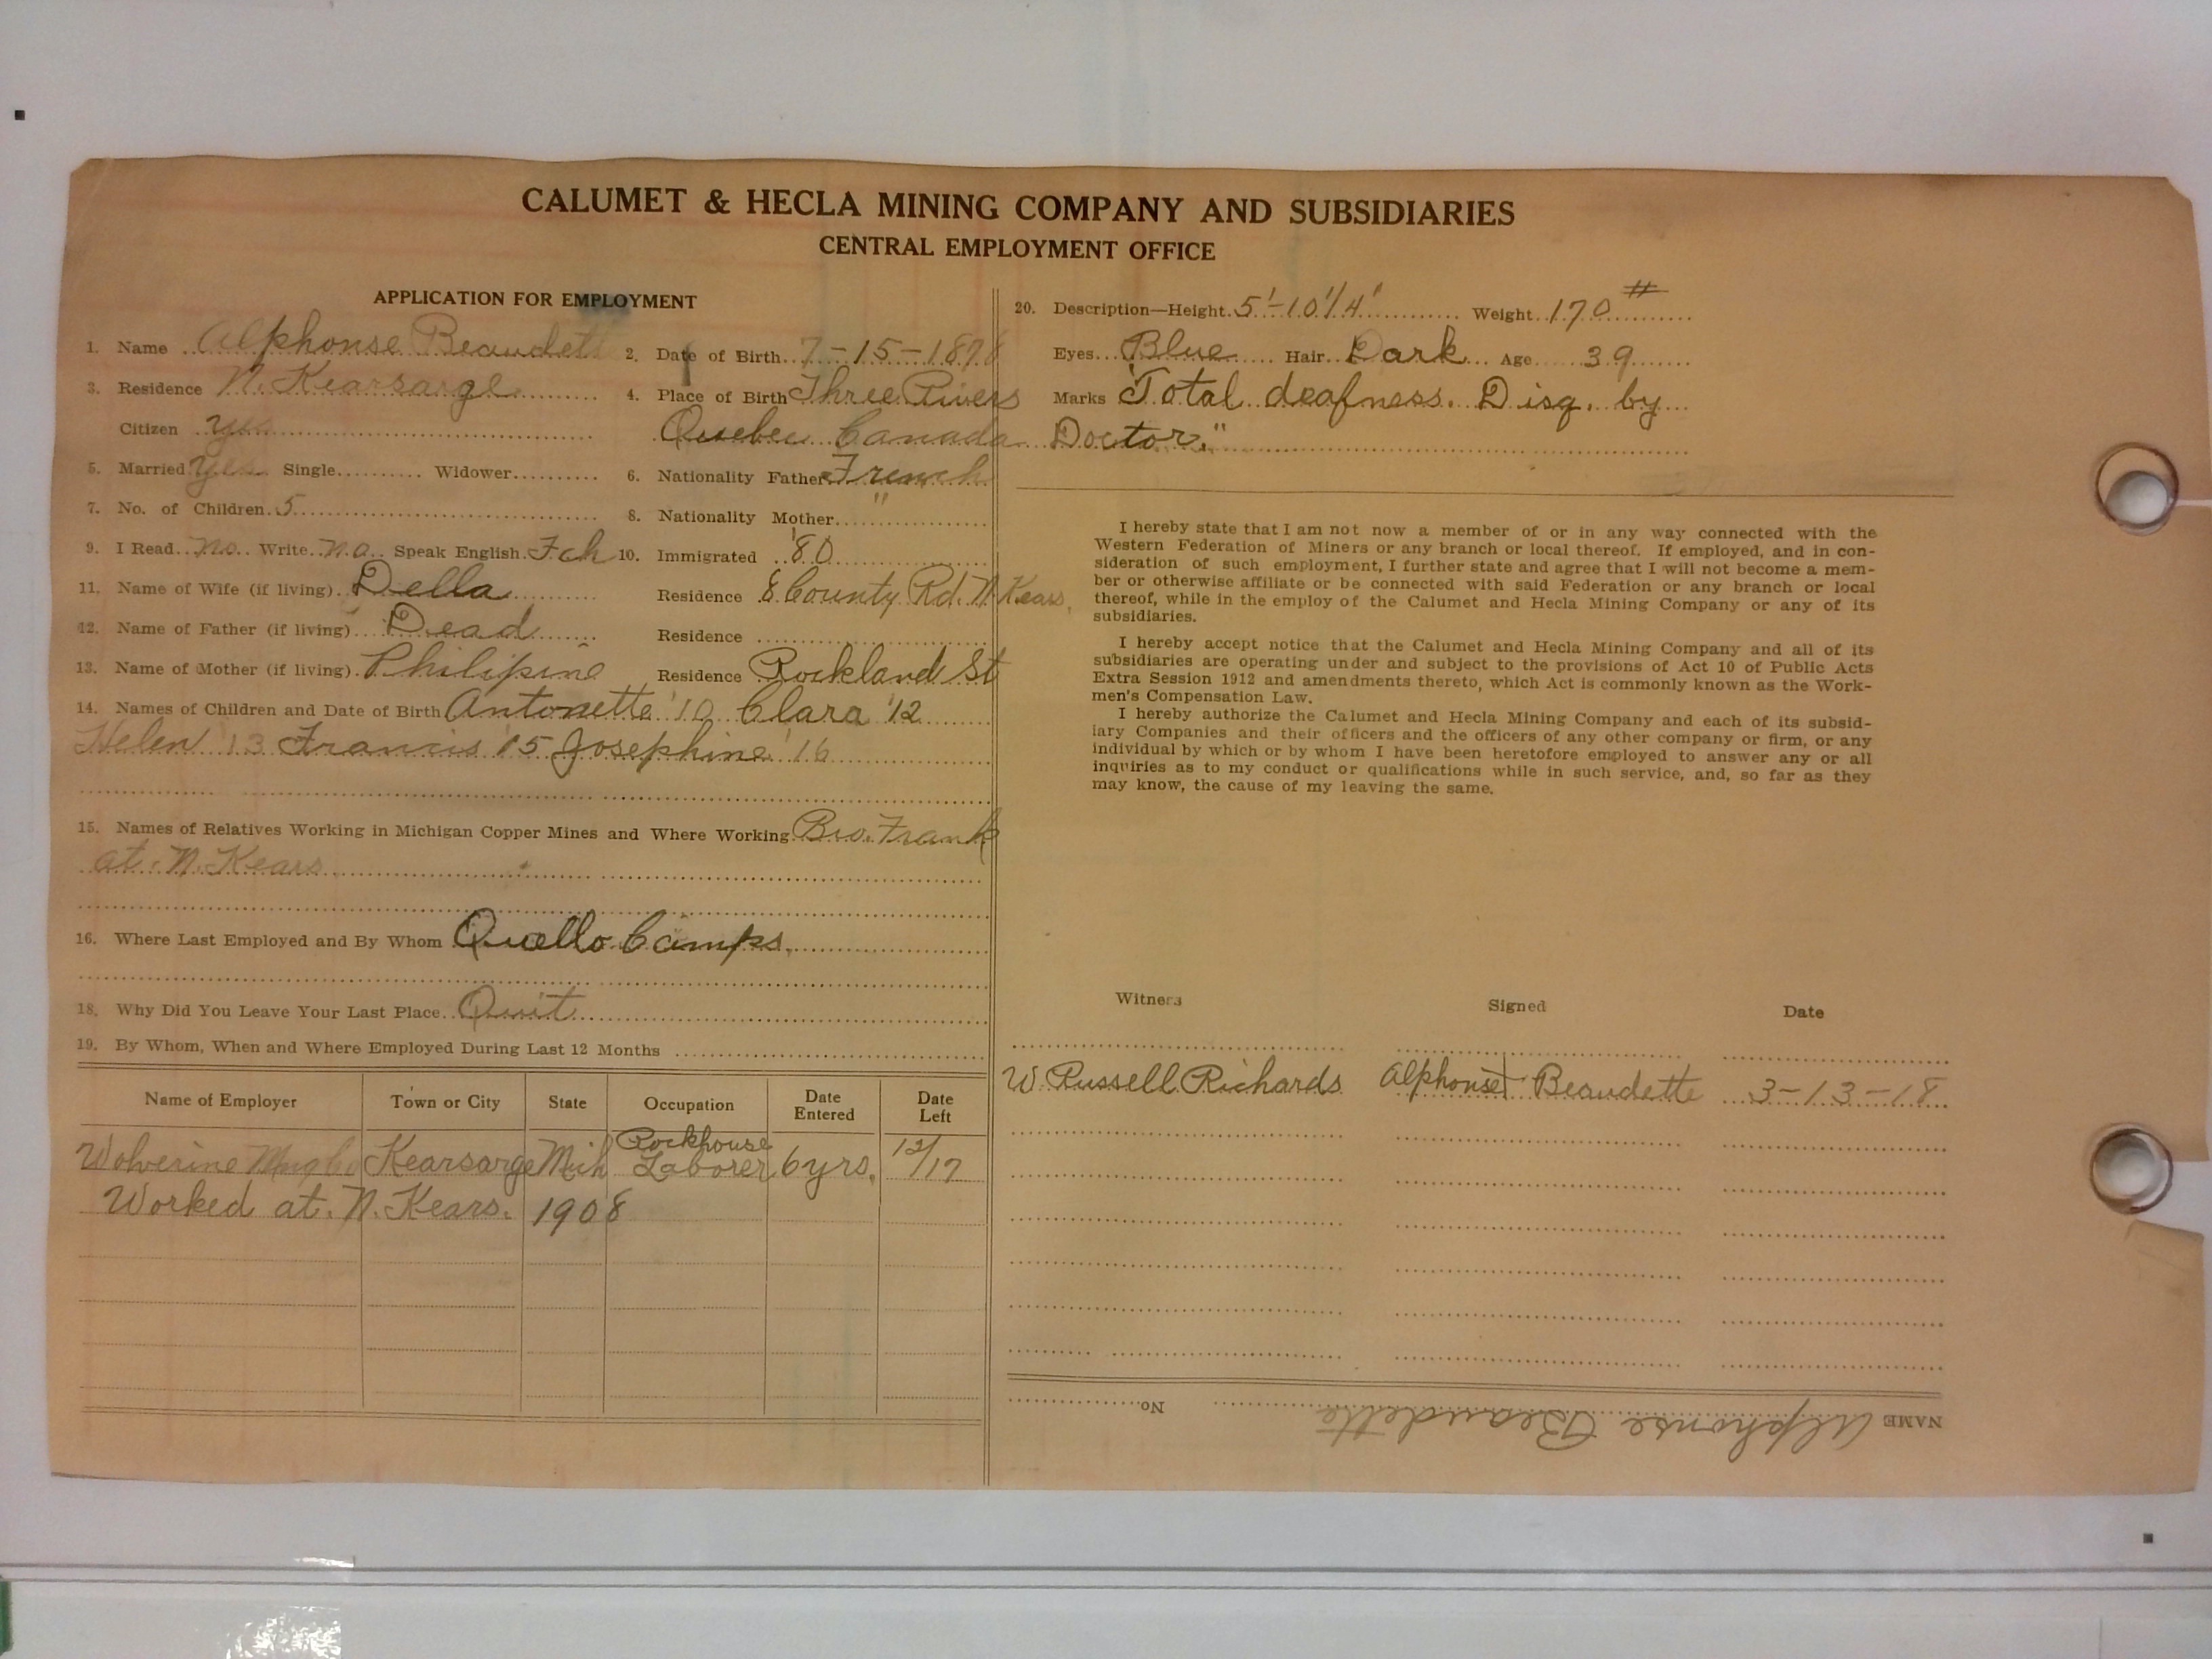 CALUMET & HECLA MINING COMPANY AND SUBSIDIARIES
CENTRAL EMPLOYMENT OFFICE
APPLICATION FOR EMPLOYMENT
1. Name Alphonse Beaudett 2. Date of Birth 7-15-1878
3. Residence N. Kearsarge 4. Place of Birth Three Rivers
Citizen yes Quebec Canada
5. Married yes Single Widower 6. Nationality Father French
7. No. of Children 5 8. Nationality Mother "
9. I Read no Write no Speak English Fch 10. Immigrated '80
11. Name of Wife (if living) Della Residence 8 County Rd. N Kears.
12. Name of Father (if living) Dead Residence
13. Name of Mother (if living) Philipine Residence Rockland St
14. Names of Children and Date of Birth Antonette '10 Clara '12
Helen '13 Francis '15 Josephine '16
15. Names of Relatives Working in Michigan Copper Mines and Where Working Bro. Frank
at N. Kears
16. Where Last Employed and By Whom Quello Camps.
18. Why Did You Leave Your Last Place Quit
19. By Whom, When and Where Employed During Last 12 Months
Name of Employer Town or City State Occupation Date Entered Date Left
Wolverine Kearsarge Mich Rockhouse Laborer 6 yrs. 12/17
Worked at N. Kears. 1908
20. Description—Height 5'-10 1/4" Weight 170 #
Eyes Blue Hair Dark Age 39
Marks "Total deafness. Disq. by
Doctor."
I hereby state that I am not now a member of or in any way connected with the
Western Federation of Miners or any branch or local thereof. If employed, and in con-
sideration of such employment, I further state and agree that I will not become a mem-
ber or otherwise affiliate or be connected with said Federation or any branch or local
thereof, while in the employ of the Calumet and Hecla Mining Company or any of its
subsidiaries.
I hereby accept notice that the Calumet and Hecla Mining Company and all of its
subsidiaries are operating under and subject to the provisions of Act 10 of Public Acts
Extra Session 1912 and amendments thereto, which Act is commonly known as the Work-
men's Compensation Law.
I hereby authorize the Calumet and Hecla Mining Company and each of its subsid-
iary Companies and their officers and the officers of any other company or firm, or any
individual by which or by whom I have been heretofore employed to answer any or all
inquiries as to my conduct or qualifications while in such service, and, so far as they
may know, the cause of my leaving the same.
Witness Signed Date
W. Russell Richards Alphonse Beaudette 3-13-18
NAME Alphonse Beaudette No.